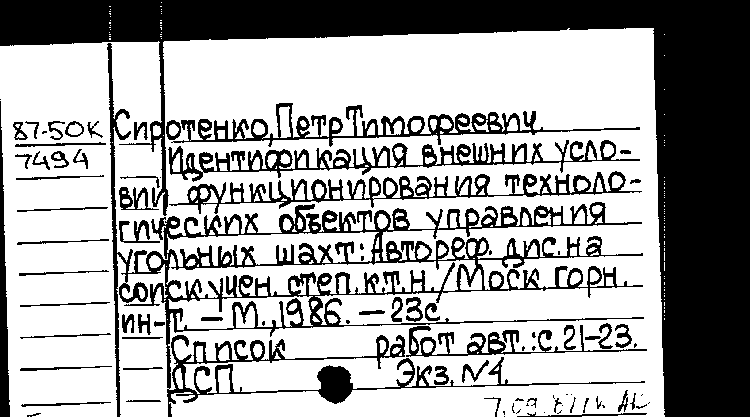 87-50К Сиротенко, Петр Тимофеевич.
7494 Идентификация внешних усло-
вий функционирования техноло-
гических объектов управления
угольных шахт: Автореф. дис. на
соиск. учен. степ. к.т.н. / Моск. горн.
ин-т. — М., 1986. — 23с.
Список работ авт.: с. 21-23.
ДСП. Экз. №4.
7.09.87